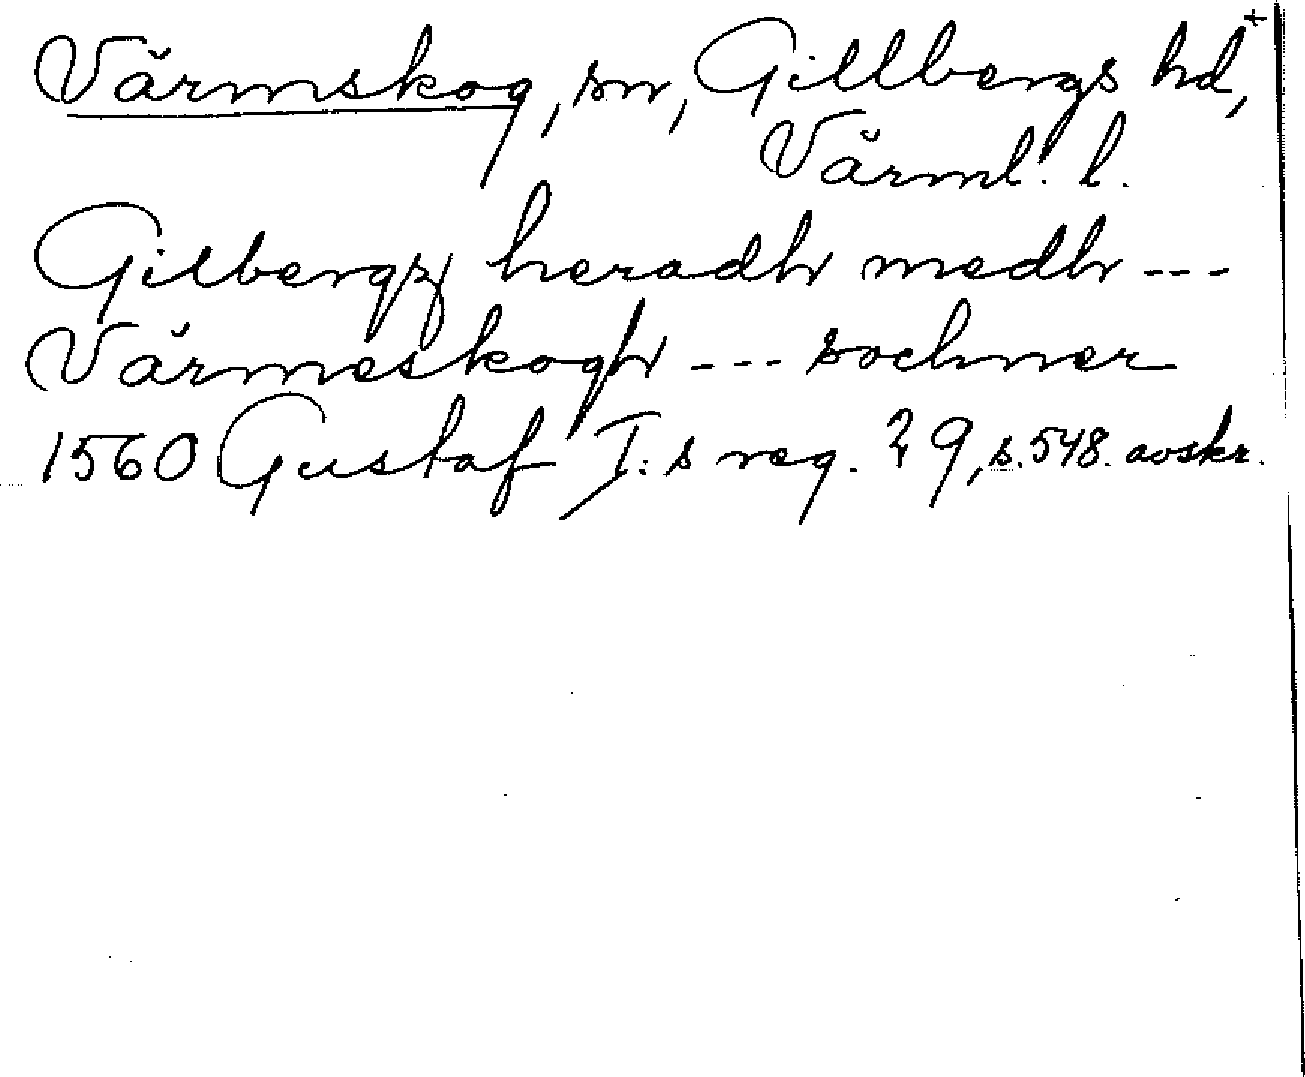 Värmskog, sn, Gillbergs hd,+
Värml. l.
Gilbergz heradh medh ---
Värmeskogh --- sochner
1560 Gustaf I:s reg. 29, s. 548. avskr.